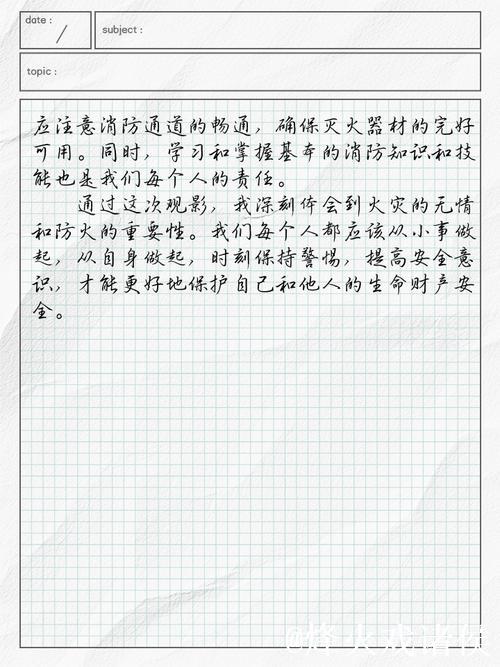 date :
subject :
topic :
应注意消防通道的畅通，确保灭火器材的完好
可用。同时，学习和掌握基本的消防知识和技
能也是我们每个人的责任。
通过这次观影，我深刻体会到火灾的无情
和防火的重要性。我们每个人都应该从小事做
起，从自身做起，时刻保持警惕，提高安全意
识，才能更好地保护自己和他人的生命财产安
全。
@烽火戏诸侯